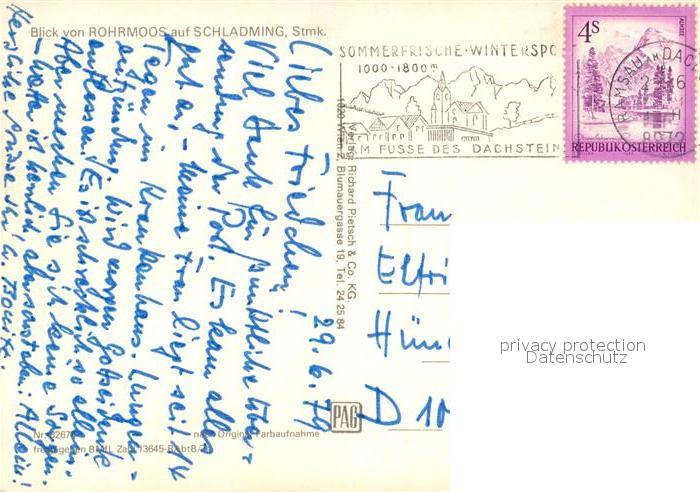 Blick von ROHRMOOS auf SCHLADMING, Stmk.
SOMMERFRISCHE·WINTERSPO
1000-1800m
AM FUSSE DES DACHSTEIN
4S
REPUBLIK ÖSTERREICH
RAMSAU AM DACH
Verlag Richard Pietsch & Co. KG.
1020 Wien 2, Blumauergasse 19, Tel. 24 25 84
29.6.79
Liebes Friedchen!
Viel Dank für pünktliche Über-
sendung der Post. Es kam alles
gut an, - meine Frau liegt seit 14
Tagen im Krankenhaus. Lungen-
entzündung. Wird morgen Gottseidank
entlassen. Es ist schrecklich so allein.
Aber machen Sie sich keine Sorgen.
- Wetter ist herrlich Allein!
Herzliche Grüsse Ihr
Frau
Elfri
Hün
D 10
PAG
Nr.
nach Original Farbaufnahme
privacy protection
Datenschutz